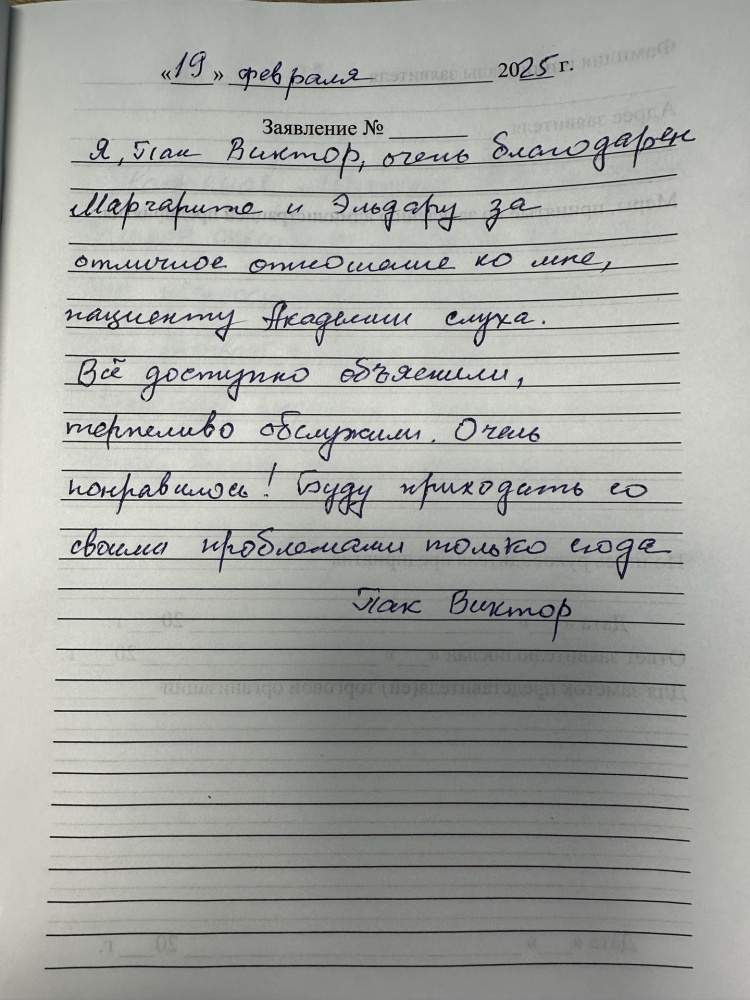 «19» февраля 2025 г.
Заявление №
Я, Пак Виктор, очень благодарен
Маргарите и Эльдару за
отличное отношение ко мне,
пациенту Академии слуха.
Всё доступно объяснили,
терпеливо обслужили. Очень
понравилось! Буду приходить со
своими проблемами только сюда
Пак Виктор